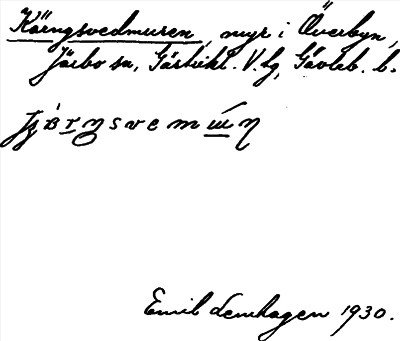 Kärngsvedmuren, myr i Överbyn,
Järbo sn, Gästrikl. V. tg, Gävleb. l.
Emil Lenhagen 1930.